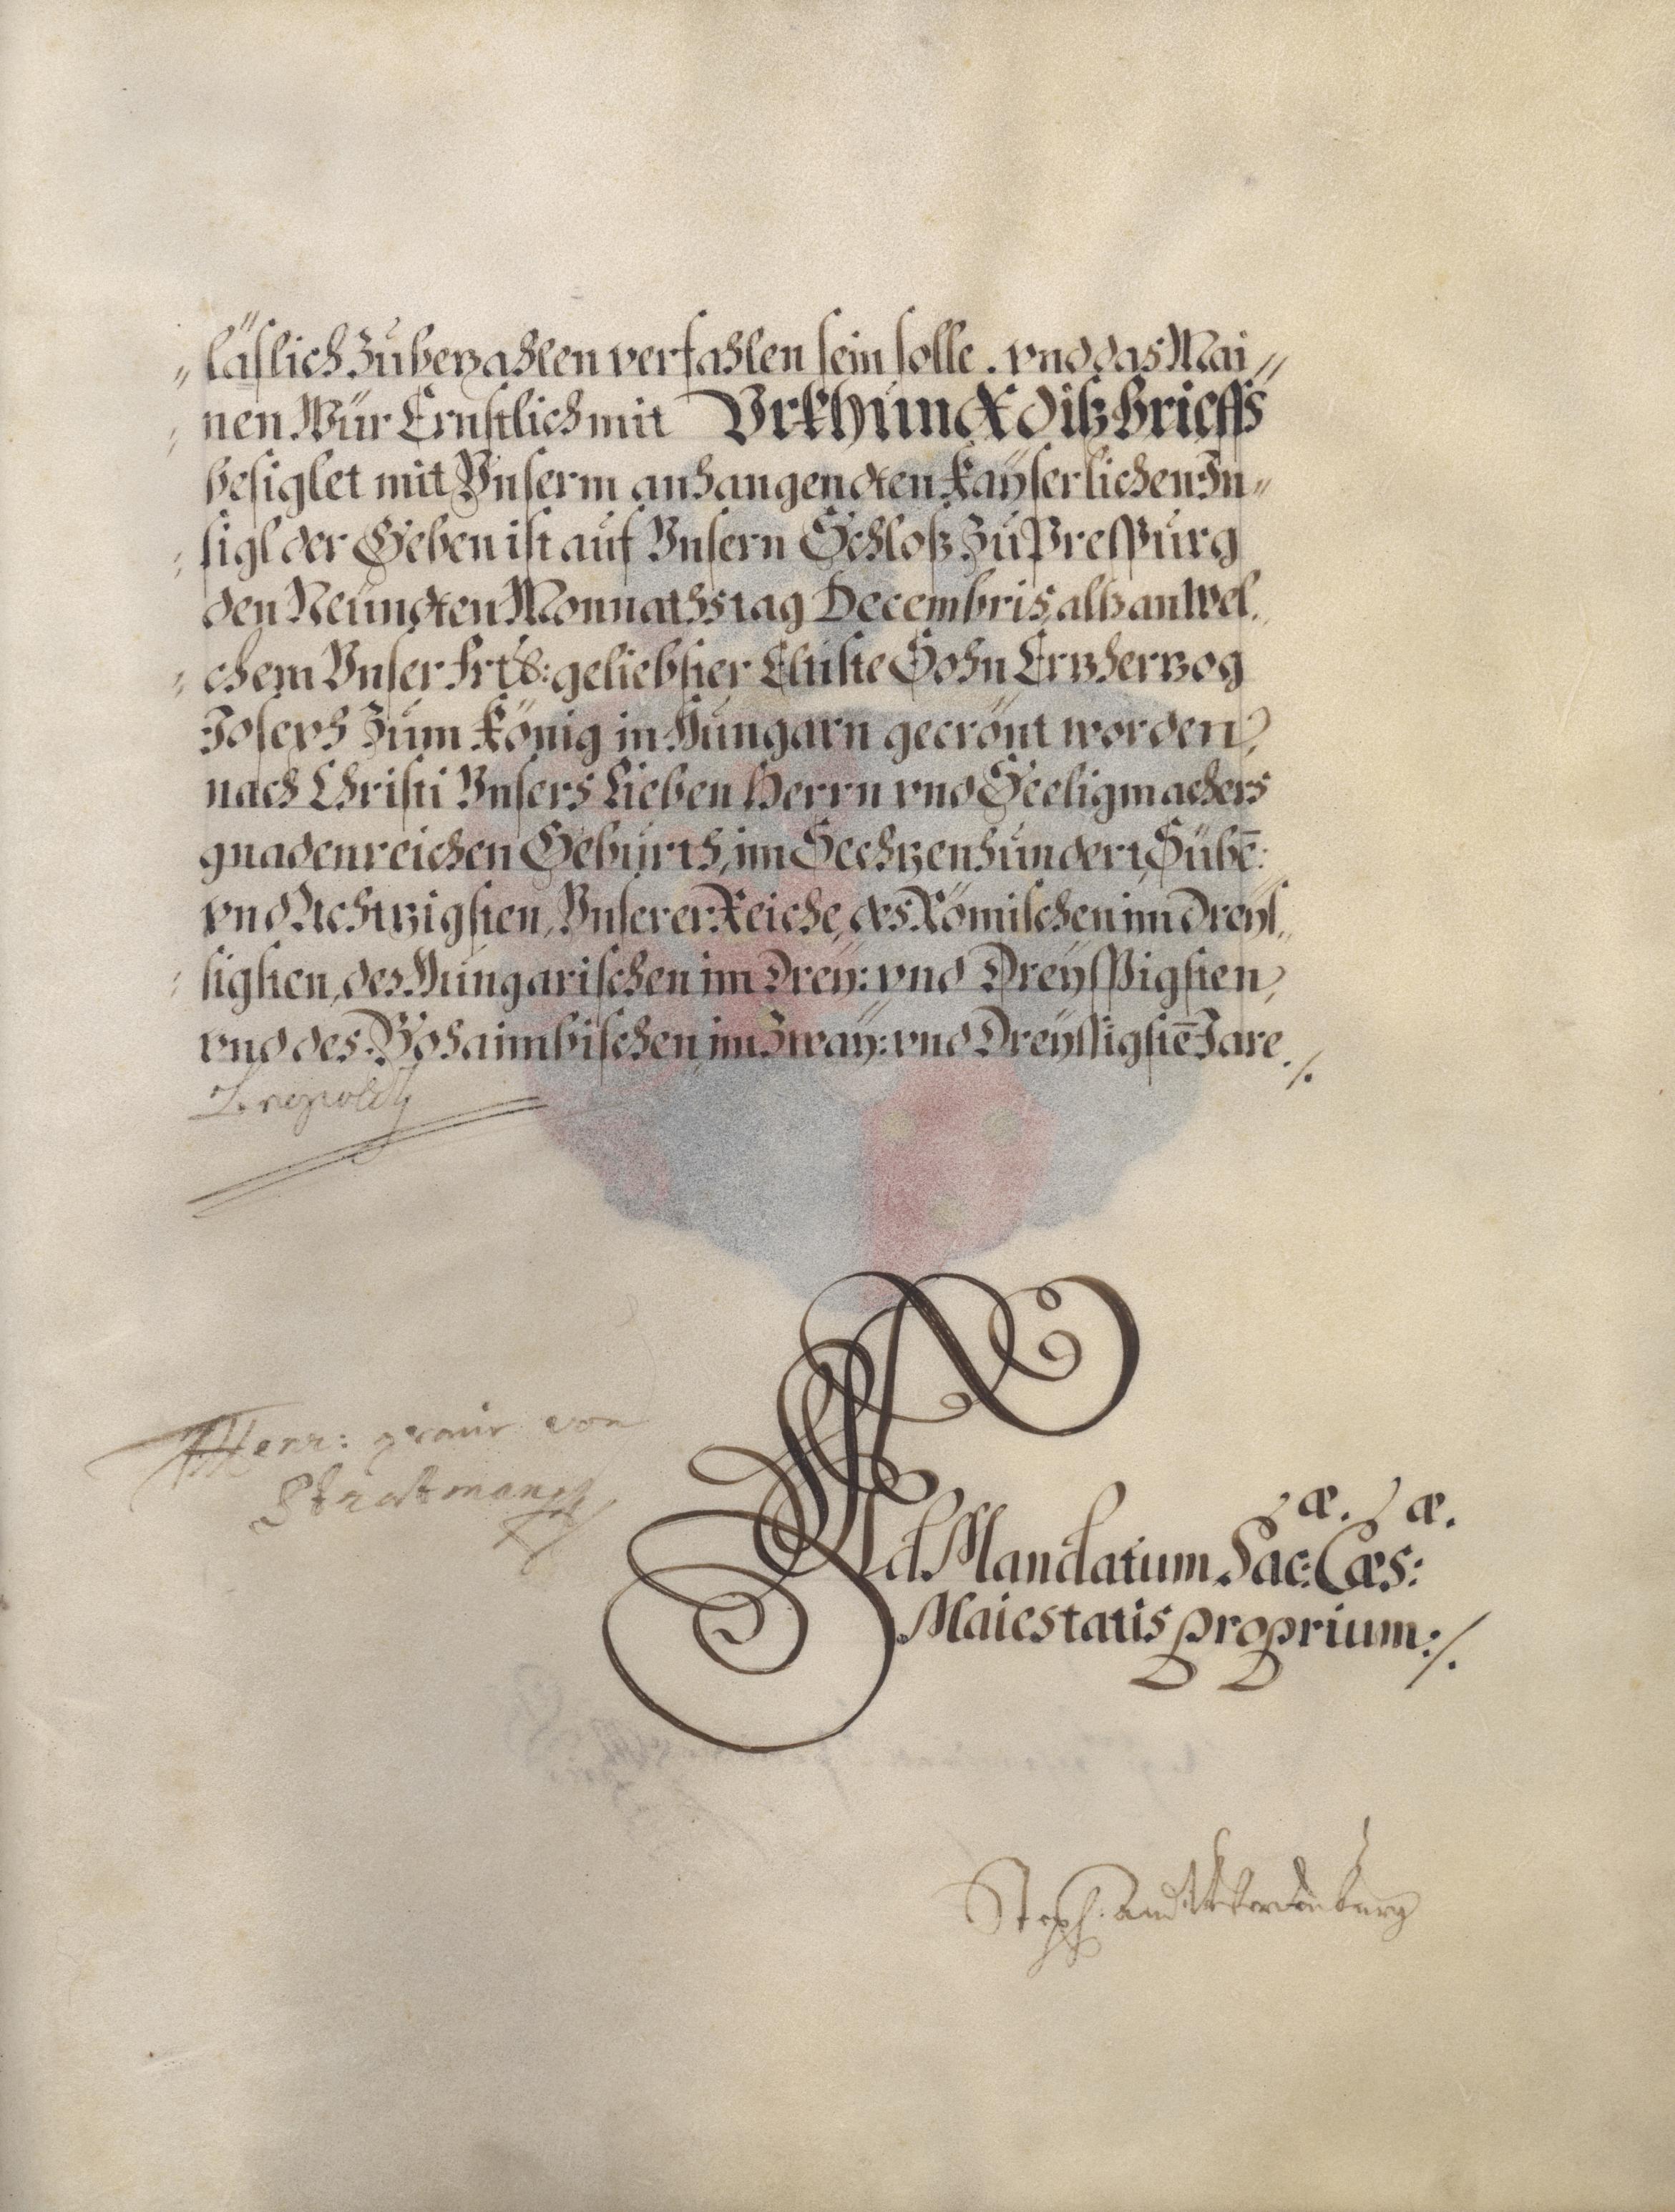 läslich zubezahlen verfahlen sein solle. vnd das Mai⸗
nen Wür Ernstlich mit Vrkhundt diß Brieffs
besiglet mit Vnserm anhangendten Kayserlichen In⸗
sigl der Geben ist auf Vnsern Schloß zu Prespurg
den Neündten Monnathstag Decembris, alß an wel⸗
chem Vnser frl: geliebster Eltiste Sohn Erzherzog
Joseph zum König in Hungarn gecrönt worden,
nach Christi Vnsers Lieben Herrn vnd Seeligmachers
gnadenreichen Geburth, im Sechzenhundert, Sübē:
vnd Achtzigsten, Vnserer Reiche, des Römischen im Dreys⸗
sigsten, des Hungarischen im Drey: vnd Dreyssigsten,
vnd des Bohaimbischen im Zway: vnd Dreyssigstē Jare ./.
Leopoldt
Henr: graue von
Stratman
Ad Mandatum Sac: Cæs:
æ. æ.
Maiestatis proprium: /.
Steph: And